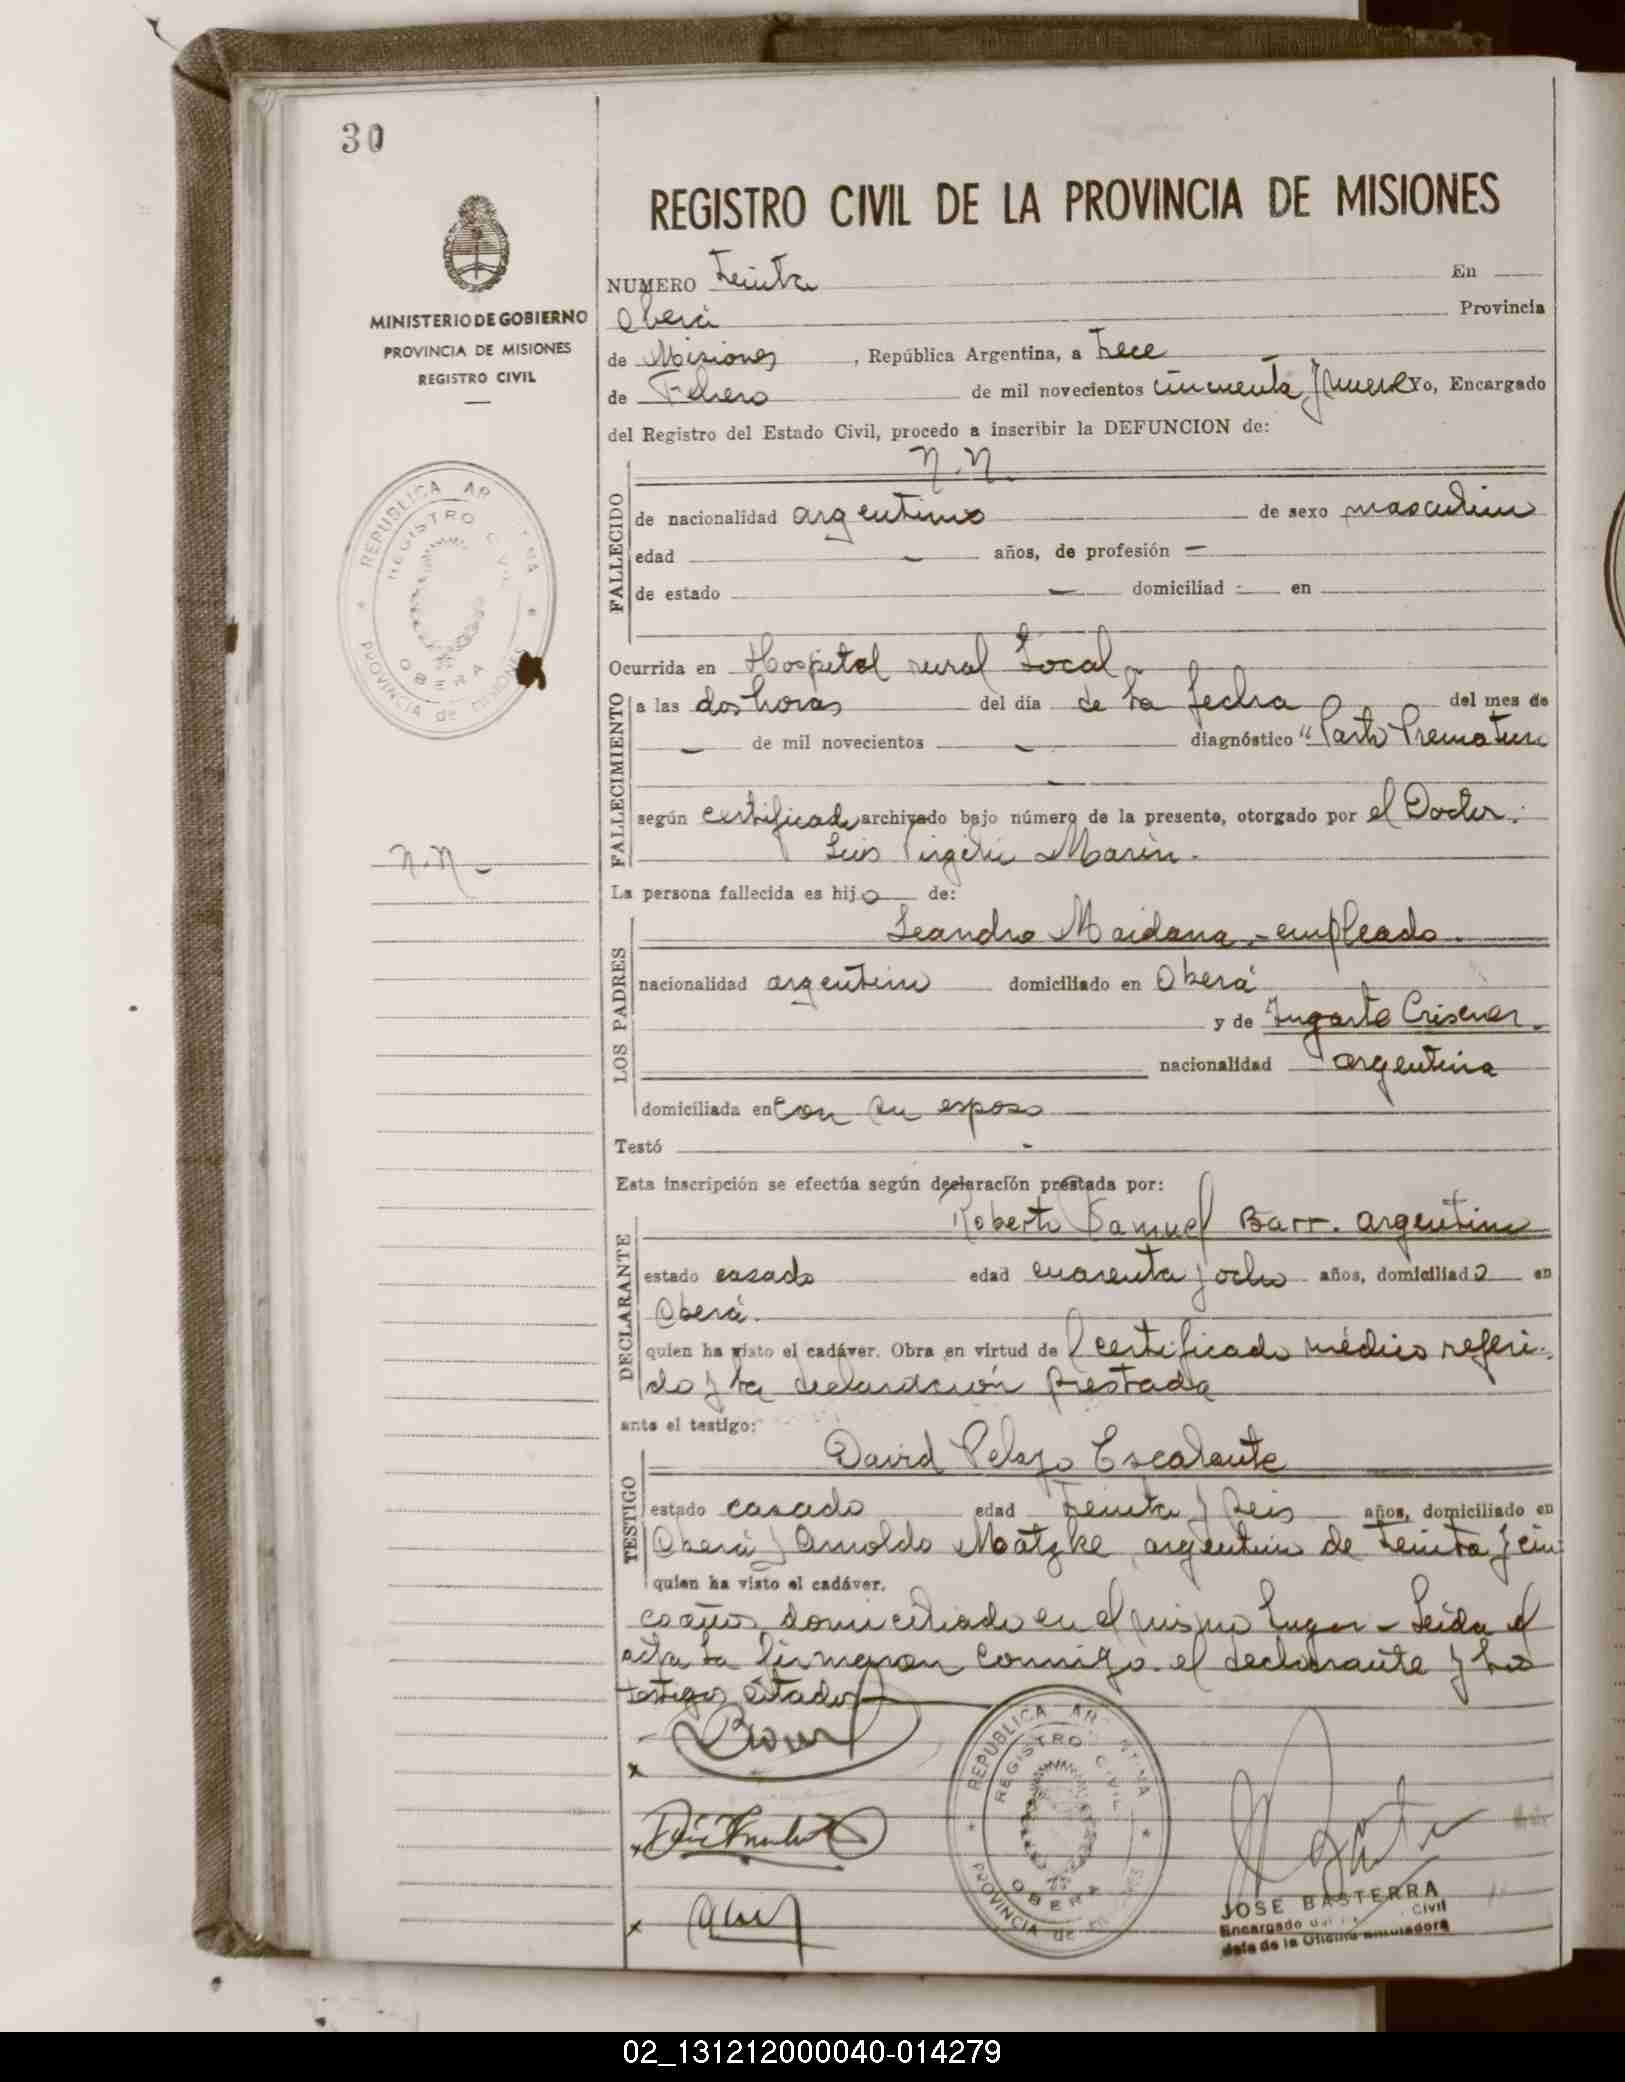 30
REGISTRO CIVIL DE LA PROVINCIA DE MISIONES
MINISTERIO DE GOBIERNO
PROVINCIA DE MISIONES
REGISTRO CIVIL
NUMERO Treinta En
Oberá Provincia
de Misiones, República Argentina, a trece
de Febrero de mil novecientos cincuenta y nueve Yo, Encargado
del Registro del Estado Civil, procedo a inscribir la DEFUNCION de:
N.N.
FALLECIDO
de nacionalidad argentino de sexo masculino
edad — años, de profesión —
de estado — domiciliad — en
REPUBLICA AR TINA
REGISTRO CIVIL
OBERA
PROVINCIA de MISIONES
Ocurrida en Hospital rural Local
FALLECIMIENTO
a las dos horas del día de la fecha del mes de
— de mil novecientos — diagnóstico "Parto Prematuro
según certificado archivado bajo número de la presente, otorgado por el Doctor:
Luis Virgilio Marin.
N.N.-
La persona fallecida es hijo de:
LOS PADRES
Leandro Maidana - empleado.
nacionalidad argentino domiciliado en Oberá
y de Crisener.
nacionalidad argentina
domiciliada en con su esposo
Testó -
Esta inscripción se efectúa según declaración prestada por:
DECLARANTE
Roberto Samuel Barr. argentino
estado casado edad cuarenta y ocho años, domiciliado en
Oberá.
quien ha visto el cadáver. Obra en virtud de certificado médico referi-
do y la declaración prestada
ante el testigo:
TESTIGO
David Pelayo Escalante
estado casado edad treinta y seis años, domiciliado en
Oberá y Arnoldo Matzke argentino de treinta y cin
quien ha visto el cadáver.
co años, domiciliado en el mismo lugar - Leida el
acta la firmaron conmigo el declarante y los
testigos citados
REPUBLICA AR NTINA
REGISTRO CIVIL
OBERA
PROVINCIA de
JOSE BASTERRA
Encargado Civil
Jefe de la Oficina
02_131212000040-014279